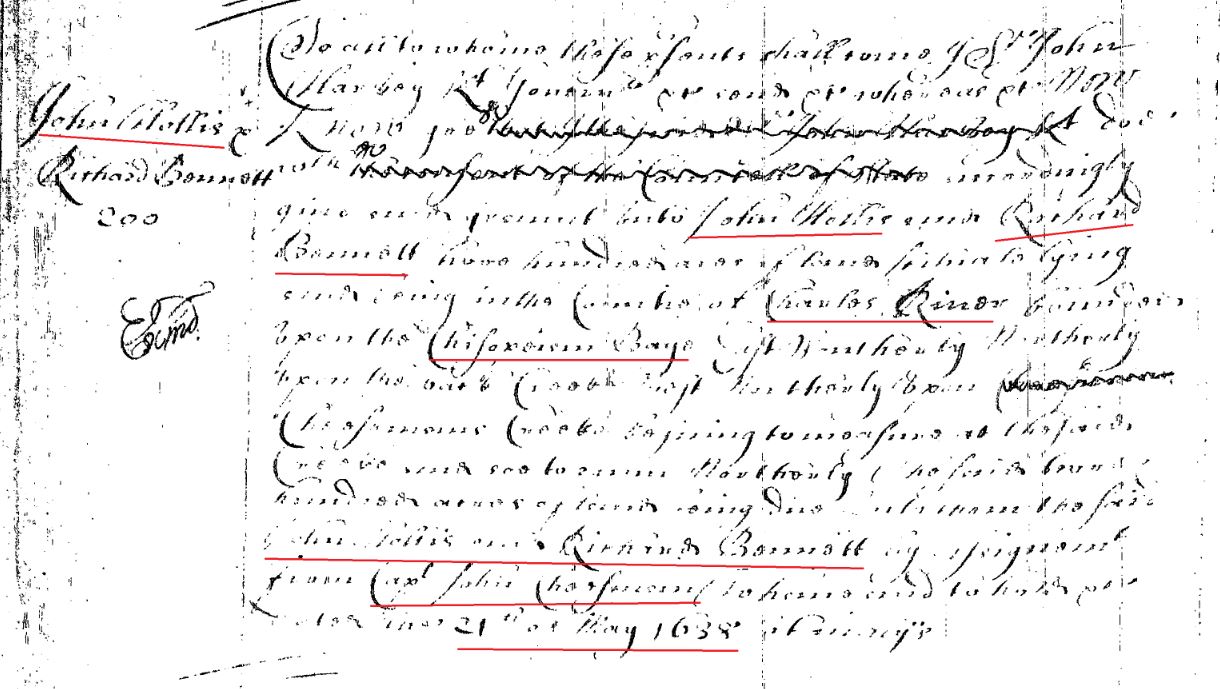 To all to whome these presents shall come I Sr John
Harvey Kt Governr &c send &c whereas &c Now
John Hollis &
Know yee that I the said Sr John Harvey Kt doe
Richard Bennett
200
with the consent of the Councell of State accordingly
give and graunt unto John Hollis and Richard
Bennett two hundred acres of land scituate lying
and being in the Countie of Charles River bounded
upon the Chisepeiacn Baye East Southerly Northerly
upon the back Creeke West Northerly upon
Cheesmans Creeke begining to measure at the said
Creeke and soe to runn Northerly the said two
hundred acres of land being due unto them the said
John Hollis and Richard Bennett by assignemt
from Capt John Cheesman to have and to hold &c
dated the 21th of May 1638